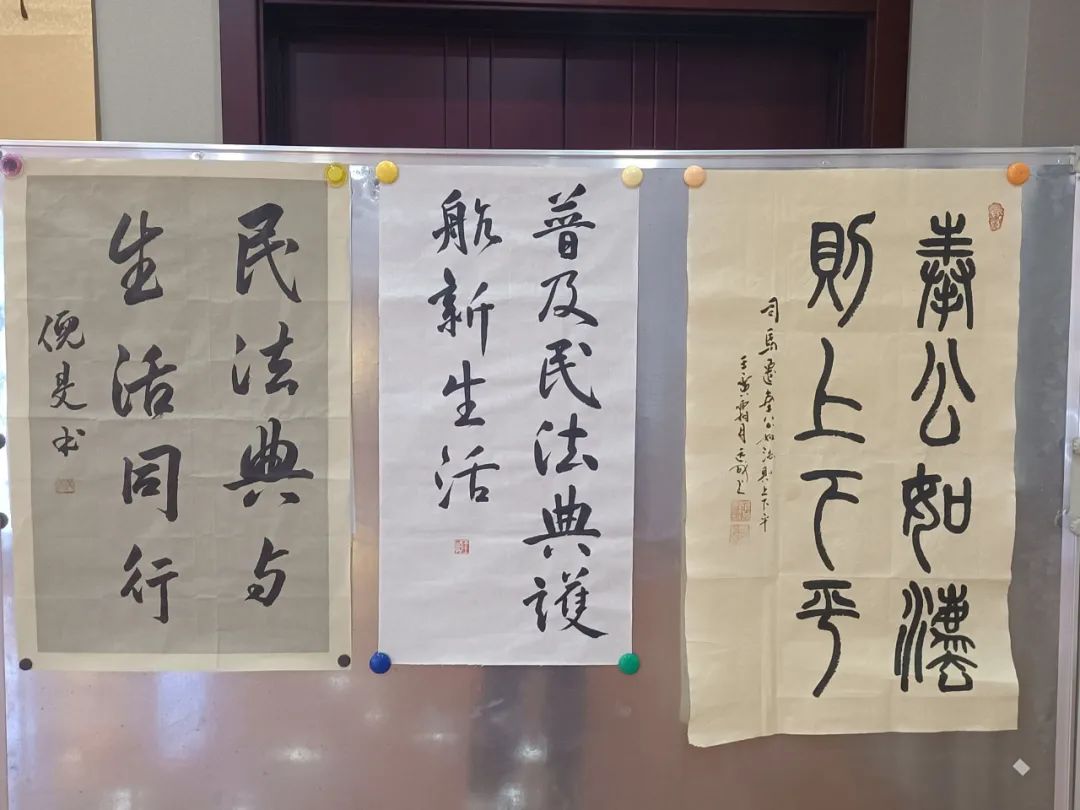 民法典与
生活同行
倪书
普及民法典護
航新生活
奉公如灋
則上下平
司馬遷奉公如法則上下平
壬寅霜月